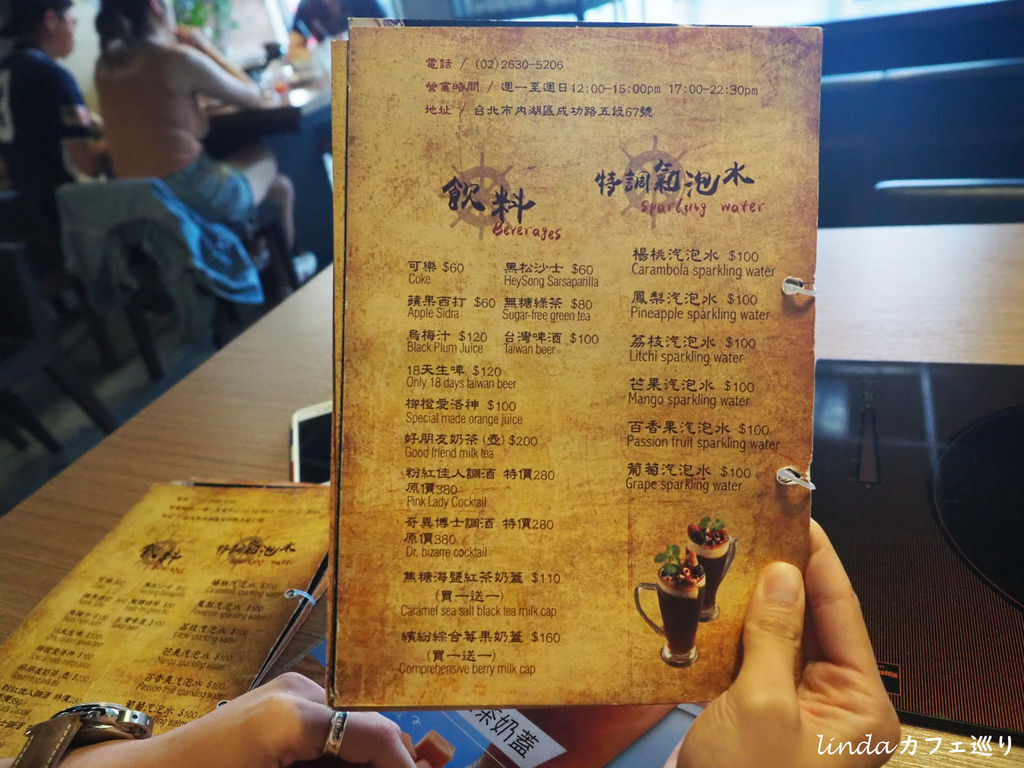 電話 / (02)2630-5206
營業時間 / 週一至週日12:00-15:00pm 17:00-22:30pm
地址 / 台北市內湖區成功路五段67號
飲料
Beverages
可樂 $60
Coke
黑松沙士 $60
HeySong Sarsaparilla
蘋果西打 $60
Apple Sidra
無糖綠茶 $80
Sugar-free green tea
烏梅汁 $120
Black Plum Juice
台灣啤酒 $100
Taiwan beer
18天生啤 $120
Only 18 days taiwan beer
柳橙愛洛神 $100
Special made orange juice
好朋友奶茶(壺) $200
Good friend milk tea
粉紅佳人調酒 特價280
原價380
Pink Lady Cocktail
奇異博士調酒 特價280
原價380
Dr. bizarre cocktail
焦糖海鹽紅茶奶蓋 $110
(買一送一)
Caramel sea salt black tea milk cap
繽紛綜合莓果奶蓋 $160
(買一送一)
Comprehensive berry milk cap
特調氣泡水
Sparling water
楊桃汽泡水 $100
Carambola sparkling water
鳳梨汽泡水 $100
Pineapple sparkling water
荔枝汽泡水 $100
Litchi sparkling water
芒果汽泡水 $100
Mango sparkling water
百香果汽泡水 $100
Passion fruit sparkling water
葡萄汽泡水 $100
Grape sparkling water
飲料
Beverages
特調氣泡水
Sparling water
楊桃汽泡水 $100
鳳梨汽泡水 $100
荔枝汽泡水 $100
芒果汽泡水 $100
百香果汽泡水 $100
Passion fruit sparkling water
葡萄汽泡水 $100
茶奶蓋
lindaカフェ巡り